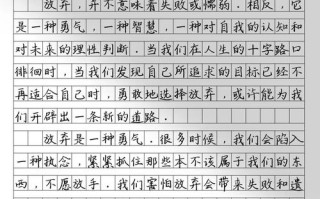 放弃，并不意味着失败或懦弱。相反，它
是一种勇气，一种智慧，一种对自我的认知和
对未来的理性判断。当我们在人生的十字路口
徘徊时，当我们发现自己所追求的目标已经不
再适合自己时，勇敢地选择放弃，或许能为我
们开辟出一条新的道路。
放弃是一种勇气。很多时候，我们会陷入
一种执念，紧紧抓住那些本不该属于我们的东
西，不愿放手。我们害怕放弃会带来失败和遗